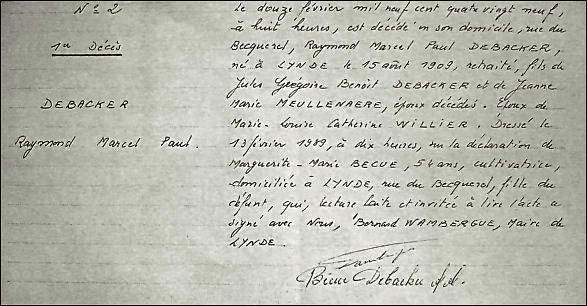 N° 2
1er Décès
DEBACKER
Raymond Marcel Paul.
Le douze février mil neuf cent quatre vingt neuf,
à huit heures, est décédé en son domicile, rue du
Becquerel, Raymond Marcel Paul DEBACKER,
né à LYNDE le 15 août 1909, retraité, fils de
Jules Grégoire Benoit DEBACKER et de Jeanne
Marie MEULLENAERE, époux décédés. Epoux de
Marie-Louise Catherine WILLIER. Dressé le
13 février 1989, à dix heures, sur la déclaration de
Marguerite-Marie BECUE, 54 ans, cultivatrice,
domiciliée à LYNDE, rue du Becquerel, fille du
défunt, qui, lecture faite et invitée à lire l'acte a
signé avec Nous, Bernard WAMBERGUE, Maire de
LYNDE.
Debacker